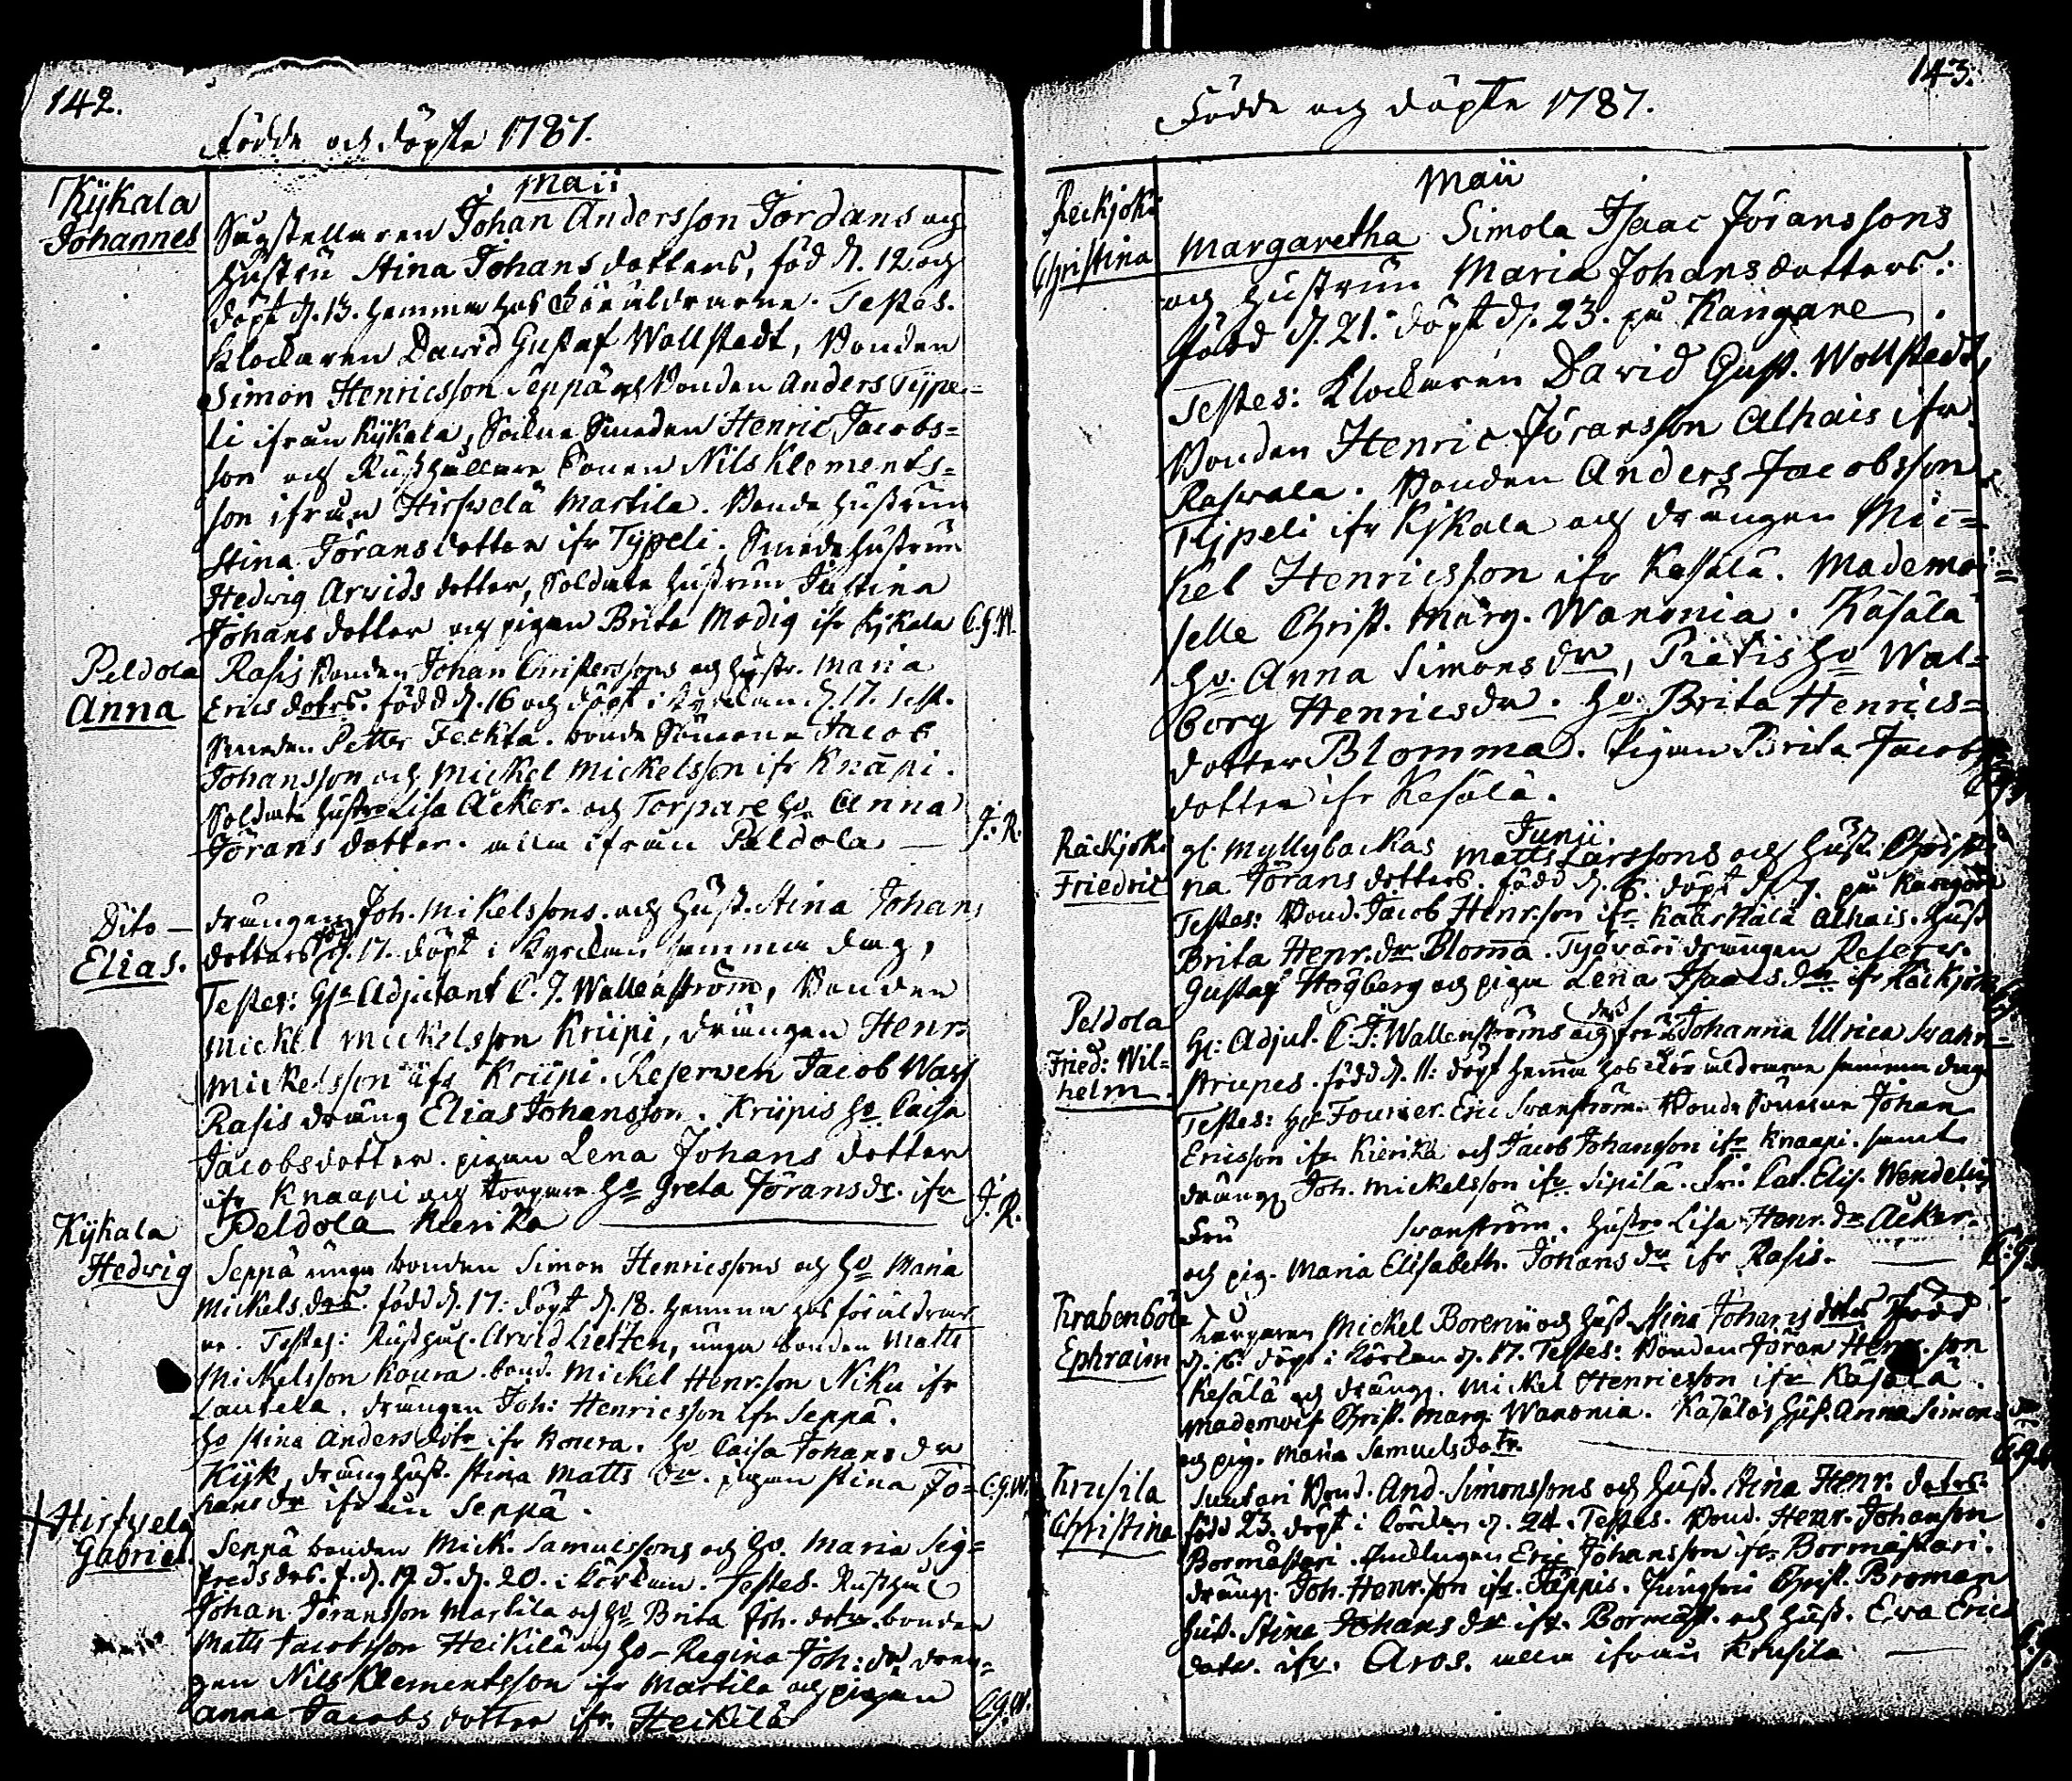 142.
Födde och döpte 1787.
Maii
Kÿkala
Johannes
Johan Andersson Jordans och
hustru Stina Johansdotters, född d. 12. och
döpt d. 13. hemma hos Föräldrarne. Testes.
Klockaren David Gustaf Wallstedt, Bonden
Simon Henricsson Seppä och Bonden Anders Tÿpe=
li ifrån Kÿkala, Smeden Henric Jacobs=
son och Nils Klements=
son ifrån Hirfvelä Martila. Bonde hustrun
Stina Jöransdotter ifr Tÿpeli. Smeds hustrun
Hedvig Arvidsdotter, Soldate hustrun Justina
Johansdotter och pigan Brita Modig ifr Kÿkala C.G.W.
Peldola
Anna
Rasis Bonden Johan Christerssons och hustr. Maria
Erics dotrs. född d. 16 och döpt i kyrckan d. 17. test.
Smeden Petter Feckta. bonde Sönerne Jacob
Johansson och Mickel Mickelsson ifr Knapi.
Soldate hustr Lisa Acker. och Torpare ho Anna
Jörans dotter. alla ifrån Peldola — J. R.
Dito —
Elias.
drängen Joh. Mikelssons. och hust. Stina Johans
dotters föd d. 17. döpt i kyrckan samma dag,
Testes: Hr Adjutant C. J. Wallenström, Bonden
Mickel Mickelsson Kriipi, drängen Henr.
Mickelsson ifr Kriipi. Reserven Jacob Wass
Rasis dräng Elias Johansson. Kriipis ho Caisa
Jacobsdotter. pigan Lena Johans dotter
ifr Knaapi och torpare ho Greta Jörans dr. ifr
Peldola Kierika — J. R.
Kÿkala
Hedvig
Seppä unga bonden Simon Henricssons och ho Maria
Mickels drs. född d. 17: döpt d. 18. hemma hos föräldrar
ne. Testes: Arvid Lietzen, unga bonden Matts
Mickelsson Koura. bond. Mickel Henr.son Niku ifr
Lautela. drängen Joh: Henricsson ifr Seppä.
ho Stina Anders dotr ifr Koura. ho Caisa Johans dr
Kÿk, dräng hust. Stina Matts dr. pigan Stina Jo=
hans dr ifrån Seppä. C.G.W.
Hirfvelä
Gabriel.
Seppä bonden Mick. Samuelssons och ho. Maria Sig=
freds drs. f. d. 19 d. d. 20. i körkan. Testes. Rusthål
Johan Göransson Martila och ho Brita Joh. dotr. bonden
Matts Jacobsson Heikilä och ho Regina Joh: dr drän=
gen Nils Klementsson ifr Martila och pigan
Anna Jacobs dotter ifr. Heikilä C.G.W.
143.
Födde och döpte 1787.
Maii
Reckjoki
Christina
Margaretha Simola Isaac Jöranssons
och hustrun Maria Johansdotters:
född d. 21. döpt d. 23. på Kangare
Testes: Klockaren David Gust. Wollstedt,
Bonden Henric Jöransson Alhais ifr
Rasvala. Bonden Anders Jacobsson
Tÿpeli ifr Kÿkala och drängen Mic=
kel Henricsson ifr Kasälä. Mademoi=
selle Christ. Marg. Wanonia. Käsälä
ho. Anna Simons dr, Pietis ho Wal=
borg Henrics dr. ho Brita Henrics=
dotter Blomma. Pigan Brita Jacobs
dotter ifr Kesälä.
Junii.
Räckjoki
Friedric
gl. Myllybackas Matts Larssons och hust. Christi
na Jörans dotters. född d. 6. döpt d. 7. på Kangare
Testes: Bond. Jacob Henr.son ifr Alhais. hust
Brita Henr. dr Bloma. drängen Reserv.
Gustaf Högberg och pigan Lena Isaacs dr ifr Räckjoki
Peldola
Fried: Wil=
helm.
Hr: Adjut. C. J. Wallenströms och dess fru Johanna Ulrica Svahn=
ströpes. född d. 11: döpt hemma hos föräldrarne samma dag
Testes: Hr Fourier Eric Svanström. Bonde Sönerne Johan
Ericsson ifr Kierika och Jacob Johansson ifr Knaapi. samt
dräng. Joh. Mickelsson ifr Sipilä. Fru Cat. Elis. Wendelia
Fru Svanström. hustr. Lisa Henr. dr Acker.
och pig. Maria Elisabeth. Johans dr ifr Rasis. —
Krabenböle
Ephraim
Mickel Borenii och hust. Stina Johans dotrs född
d. 16. döpt i körkan d. 17. Testes: Bonden Jöran Henr.son
Kesälä och dräng. Mickel Henricsson ifr Käsälä.
Mademois. Christ. Marg. Wanonia. Käsäläs hust. Anna Simons dr
och pig. Maria Samuels dotr.
Krusila
Christina
Suutari Bond. And. Simonssons och hust. Stina Henr. dotrs.
född 23. döpt i körckan d. 24. Testes. Bond. Henr. Johansson
Bormästari. Eric Johansson ifr Bormästari.
dräng. Joh. Henr.son ifr. Täppis. Jungfru Christ. Broman
hust. Stina Johans dr ifr. Bormäst. och hust. Eva Eric
dotr. ifr. Aros. alla ifrån Krusila —